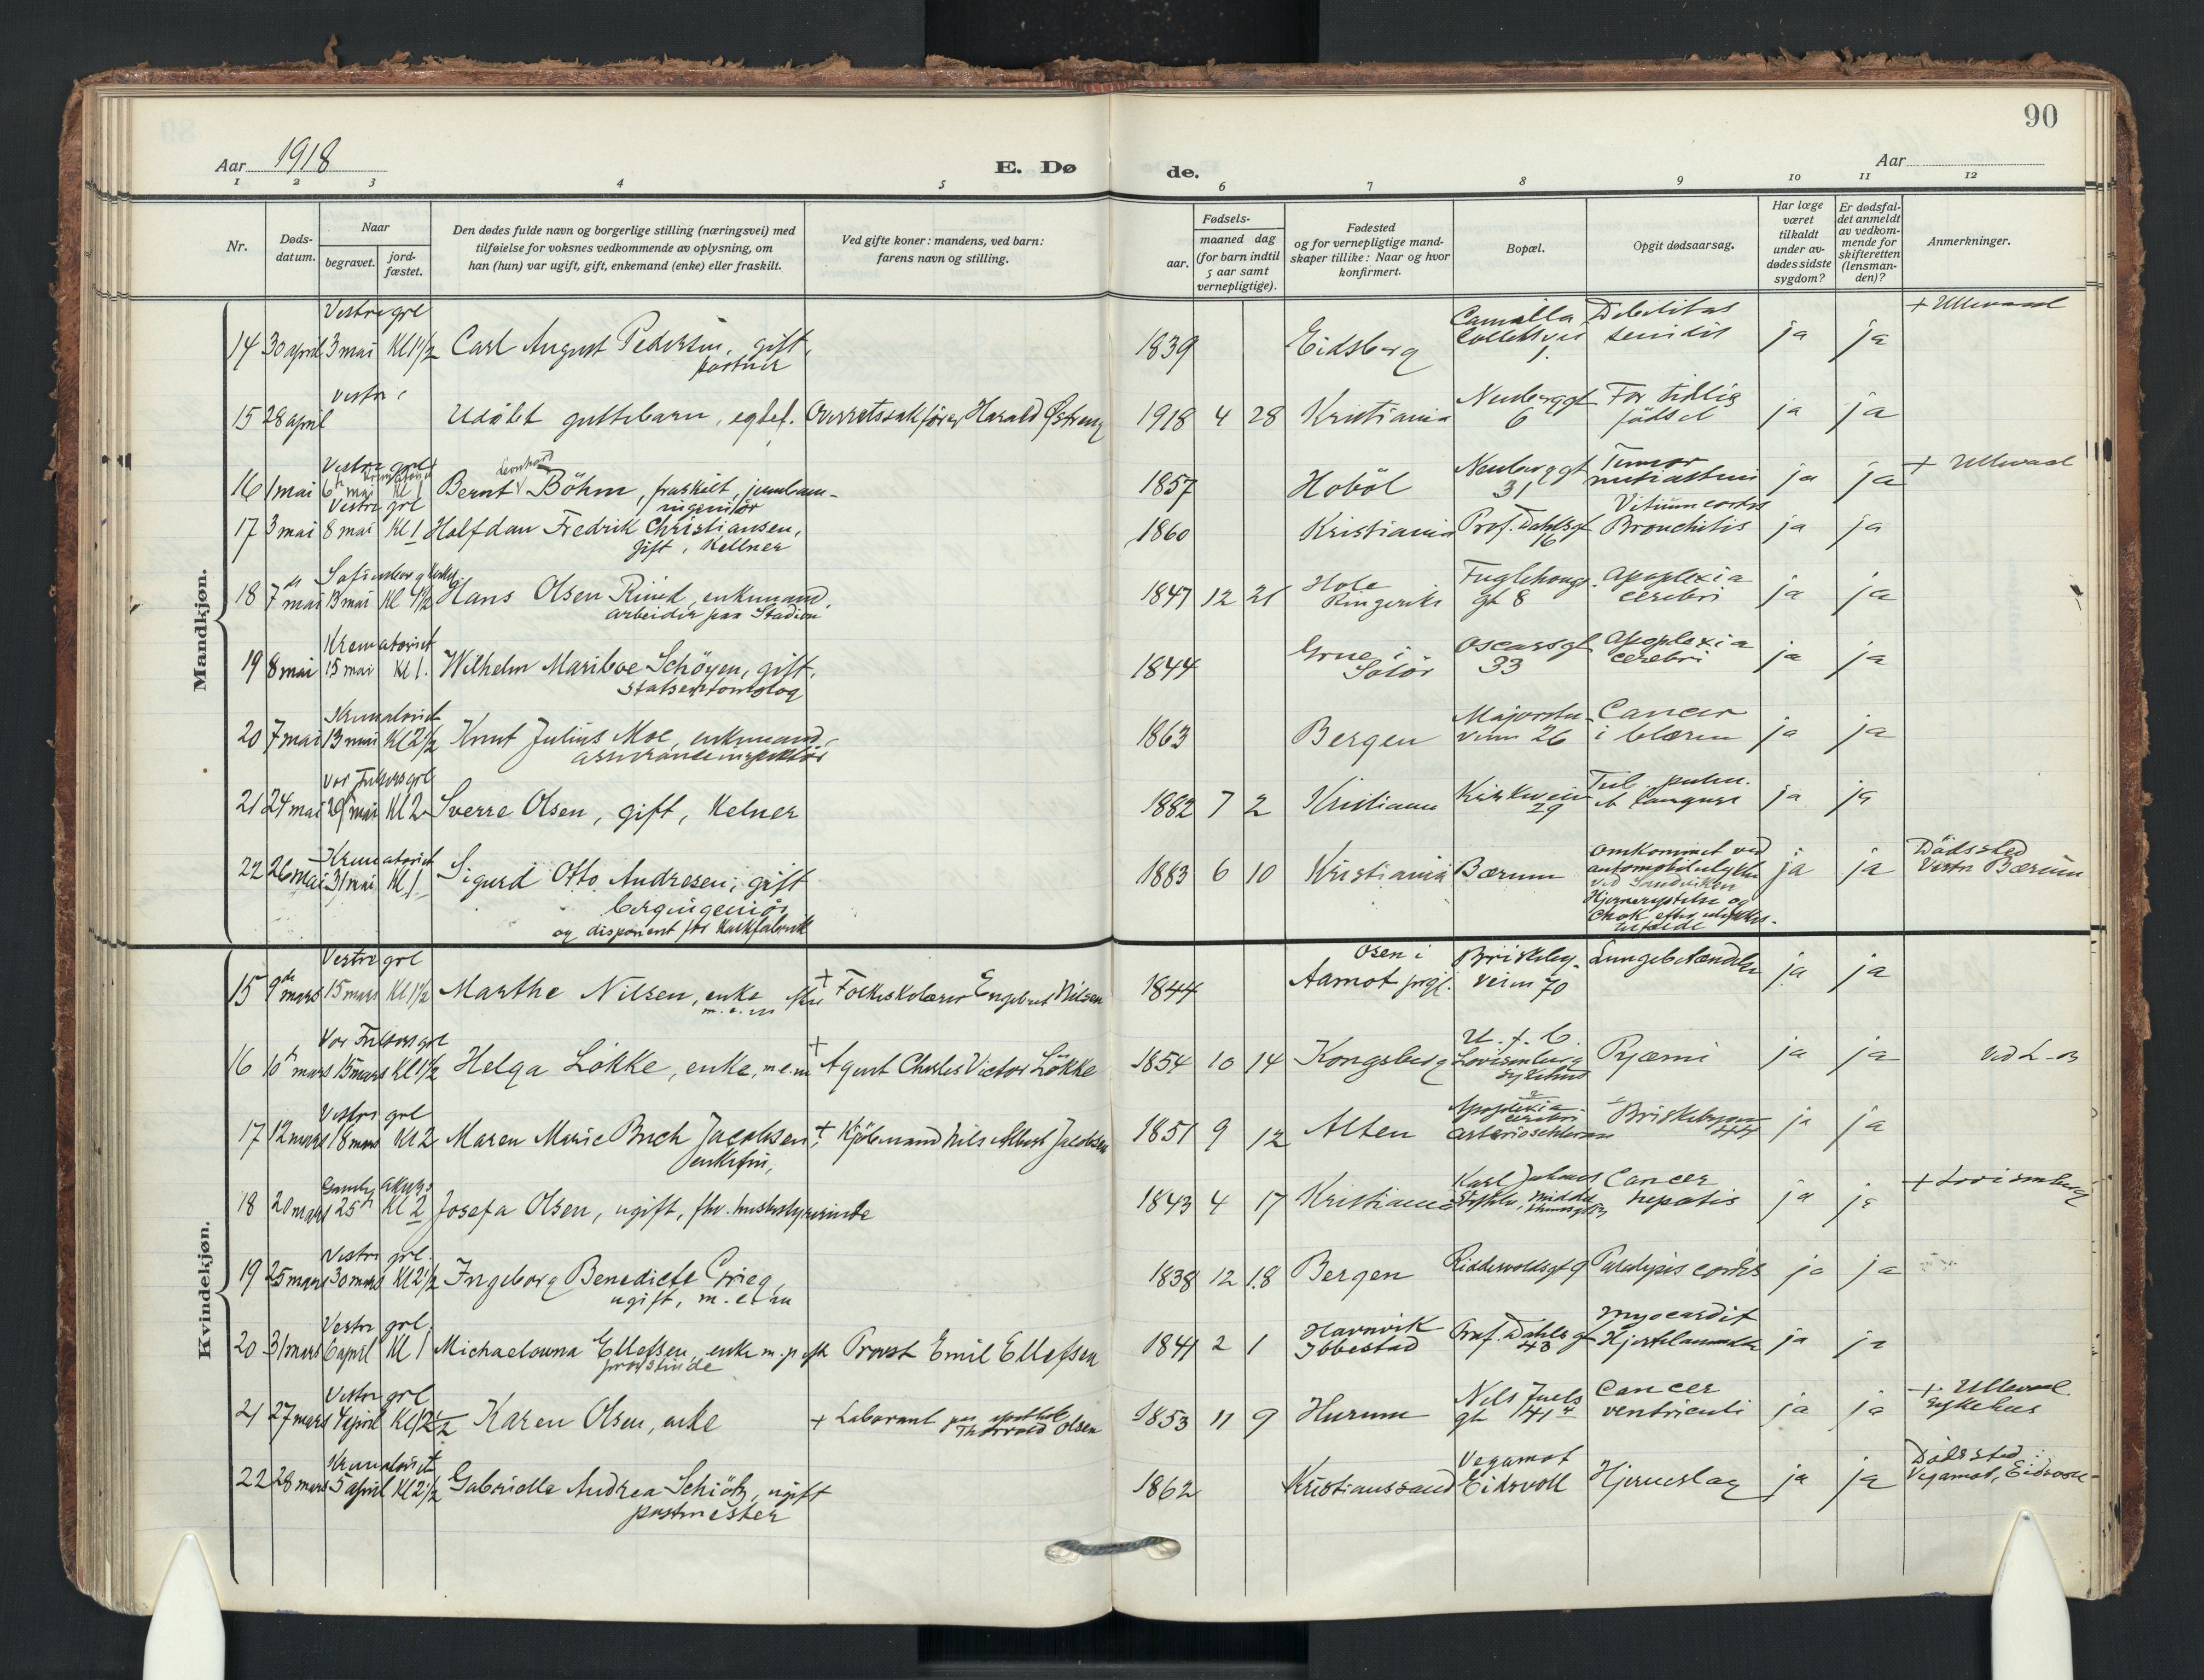 90
Aar 1918
E. Dø
de.
Aar
1 2 3 4 5 6 7 8 9 10 11 12
Nr.
Døds-
datum.
Naar
begravet.
jord-
fæstet.
Den dødes fulde navn og borgerlige stilling (næringsvei) med
tilføielse for voksnes vedkommende av oplysning, om
han (hun) var ugift, gift, enkemand (enke) eller fraskilt.
Ved gifte koner: mandens, ved barn:
farens navn og stilling.
Fødsels-
aar.
maaned dag
(for barn indtil
5 aar samt
vernepligtige).
Fødested
og for vernepligtige mand-
skaper tillike: Naar og hvor
konfirmert.
Bopæl.
Opgit dødsaarsag.
Har læge
været
tilkaldt
under av-
dødes sidste
sygdom?
Er dødsfal-
det anmeldt
av vedkom-
mende for
skifteretten
(lensman-
den)?
Anmerkninger.
Mandkjøn.
Vestre grl Camilla Debilitas + Ullevaal
14 30 april 3 mai Kl 1 1/2 Carl August Pedersen, gift, 1839 Eidsberg Collettsvei senilis ja ja
portner 1.
Vestre
15 28 april Udøbt guttebarn, egtef. Overretssakfører Harald Østreng 1918 4 28 Kristiania Neuberggt For tidlig ja ja
6 fødsel
Vestre grl Leonhard
16 1 mai 6 mai Kl 1 Bernt Böhm, fraskilt, jernbane- 1857 Hobøl Neuberggt Tumor ja ja + Ullevaal
ingeniør 31 mediastini
Vestre grl Vitium cordis
17 3 mai 8 mai Kl 1 Halfdan Fredrik Christiansen, 1860 Kristiania Prof. Dahlsgt Bronchitis ja ja
gift, Kellner 16
Sofienberg
18 7 mai 13 mai Kl 1 1/2 Hans Olsen enkemand, 1847 12 21 Hole Fuglehaug- Apoplexia ja ja
arbeider paa Stadion Ringerike gt 8 cerebri
Krematoriet
19 8 mai 15 mai Kl 1. Wilhelm Mariboe Schöyen, gift, 1844 Grue i Oscarsgt Apoplexia ja ja
Statsentomolog Solør 33 cerebri
Krematoriet
20 7 mai 13 mai Kl 2 1/2 Knut Julius Moe, enkemand, 1863 Bergen Majorstu- Cancer ja ja
assuranceinspektør veien 26 i blæren
Vor Frelsers grl
21 24 mai 29 mai Kl 2 Sverre Olsen, gift, Kelner 1882 7 2 Kristiania Kirkeveien Tub. pulm. ja ja
29 et laryngis
Krematoriet omkommet ved Dødssted
22 26 mai 31 mai Kl 1 Sigurd Otto Andresen, gift 1883 6 10 Kristiania Bærum automobilulykke ja ja Vestre Bærum
bergingeniør ved Sandviken
og disponent for Kalkfabrik Hjernerystelse og
Chok efter ulykkes-
tilfælde
Kvindekjøn.
Vestre grl Osen i Briskeby-
15 9de mars 15 mars Kl 1 1/2 Marthe Nilsen, enke efter + Folkeskolærer Engebret Nilsen 1844 Aamot prgj. veien 70 Lungebetændelse ja ja
Vor Frelsers grl U. f. B.
16 10 mars 15 mars Kl 1 1/2 Helga Løkke, enke, m.e.m + Agent Charles Victor Løkke 1854 10 14 Kongsberg Lovisenberg Pyæmi ja ja ved L-B
sykehus
Vestre grl Apoplexia
cerebri
17 12 mars 18 mars Kl 2 Maren Marie Buch Jacobsen, + Kjøbmand Nils Albert Jacobsen 1851 9 12 Alten arteriosclerose Briskebyveien ja ja
enkefru, 44
Gamle Akers
18 20 mars 25 Kl 2 Josefa Olsen, ugift, fhv. husbestyrerinde 1843 4 17 Kristiania Karl Johans Cancer ja ja + Lovisenberg
hepatis
Vestre grl.
19 25 mars 30 mars Kl 2 1/2 Ingeborg Benedicte Grieg, 1838 12 18 Bergen Riddervoldsgt 9 Paralysis cordis ja ja
ugift, m.e.m
Vestre grl. Myocardit
20 31 mars 6 april Kl 1 Michaelouna Ellefsen, enke m.p. eft Provst Emil Ellefsen 1841 2 1 Havnvik Prof. Dahls gt Hjertelammelse ja ja
provstinde Ibbestad 43
Vestre grl
21 27 mars 4 april Kl 12 1/2 Karen Olsen, enke + Laborant paa apothek 1853 11 9 Hurum Nels Juels Cancer ja ja + Ullevaal
Thorvald Olsen gt 41 ventriculi sykehus
Krematoriet Vegamot Dødssted:
22 28 mars 5 april Kl 2 1/2 Gabrielle Andrea Schiötz, ugift 1862 Kristianssand Eidsvoll Hjerneslag ja ja Vegamot, Eidsvoll
postmester